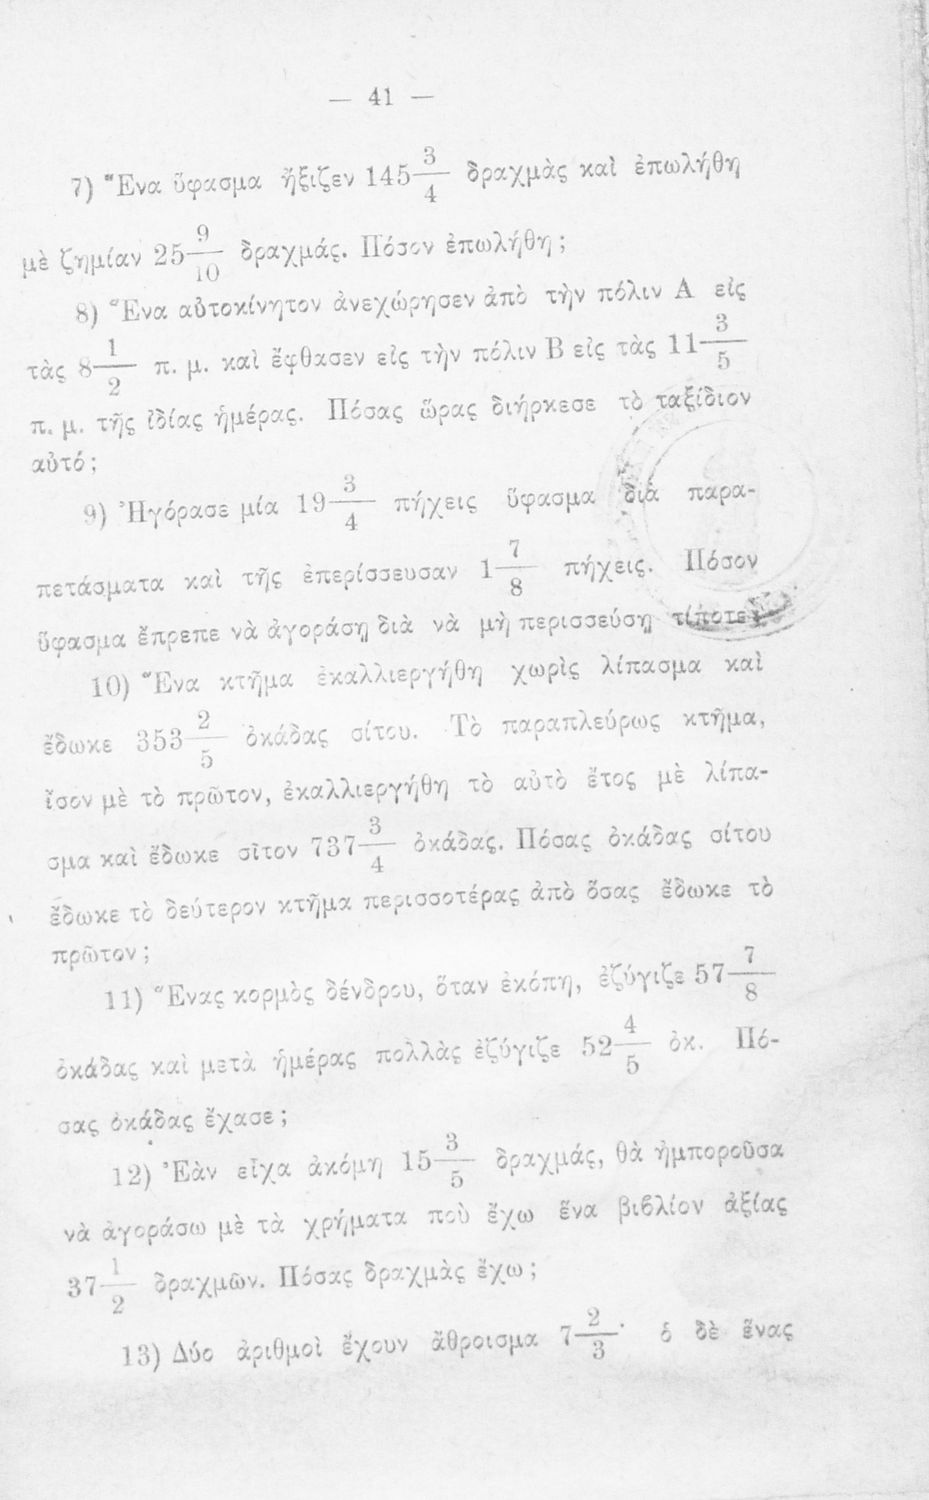 — 41 —
7) Ἕνα ὕφασμα ἤξιζεν 145 3/4 δραχμὰς καὶ ἐπωλήθη
μὲ ζημίαν 25 9/10 δραχμάς. Πόσον ἐπωλήθη;
8) Ἕνα αὐτοκίνητον ἀνεχώρησεν ἀπὸ τὴν πόλιν Α εἰς
τὰς 8 1/2 π. μ. καὶ ἔφθασεν εἰς τὴν πόλιν Β εἰς τὰς 11 3/5
π. μ. τῆς ἰδίας ἡμέρας. Πόσας ὥρας διήρκεσε τὸ ταξίδιον
αὐτό;
9) Ἠγόρασε μία 19 3/4 πήχεις ὕφασμα διὰ παρα-
πετάσματα καὶ τῆς ἐπερίσσευσαν 1 7/8 πήχεις. Πόσον
ὕφασμα ἔπρεπε νὰ ἀγοράσῃ διὰ νὰ μὴ περισσεύσῃ τίποτε;
10) Ἕνα κτῆμα ἐκαλλιεργήθη χωρὶς λίπασμα καὶ
ἔδωκε 353 2/5 ὀκάδας σίτου. Τὸ παραπλεύρως κτῆμα,
ἴσον μὲ τὸ πρῶτον, ἐκαλλιεργήθη τὸ αὐτὸ ἔτος μὲ λίπα-
σμα καὶ ἔδωκε σῖτον 737 3/4 ὀκάδας. Πόσας ὀκάδας σίτου
ἔδωκε τὸ δεύτερον κτῆμα περισσοτέρας ἀπὸ ὅσας ἔδωκε τὸ
πρῶτον;
11) Ἕνας κορμὸς δένδρου, ὅταν ἐκόπη, ἐζύγιζε 57 7/8
ὀκάδας καὶ μετὰ ἡμέρας πολλὰς ἐζύγιζε 52 4/5 ὀκ. Πό-
σας ὀκάδας ἔχασε;
12) Ἐὰν εἶχα ἀκόμη 15 3/5 δραχμάς, θὰ ἠμποροῦσα
νὰ ἀγοράσω μὲ τὰ χρήματα ποὺ ἔχω ἕνα βιβλίον ἀξίας
37 1/2 δραχμῶν. Πόσας δραχμὰς ἔχω;
13) Δύο ἀριθμοὶ ἔχουν ἄθροισμα 7 2/3· ὁ δὲ ἕνας